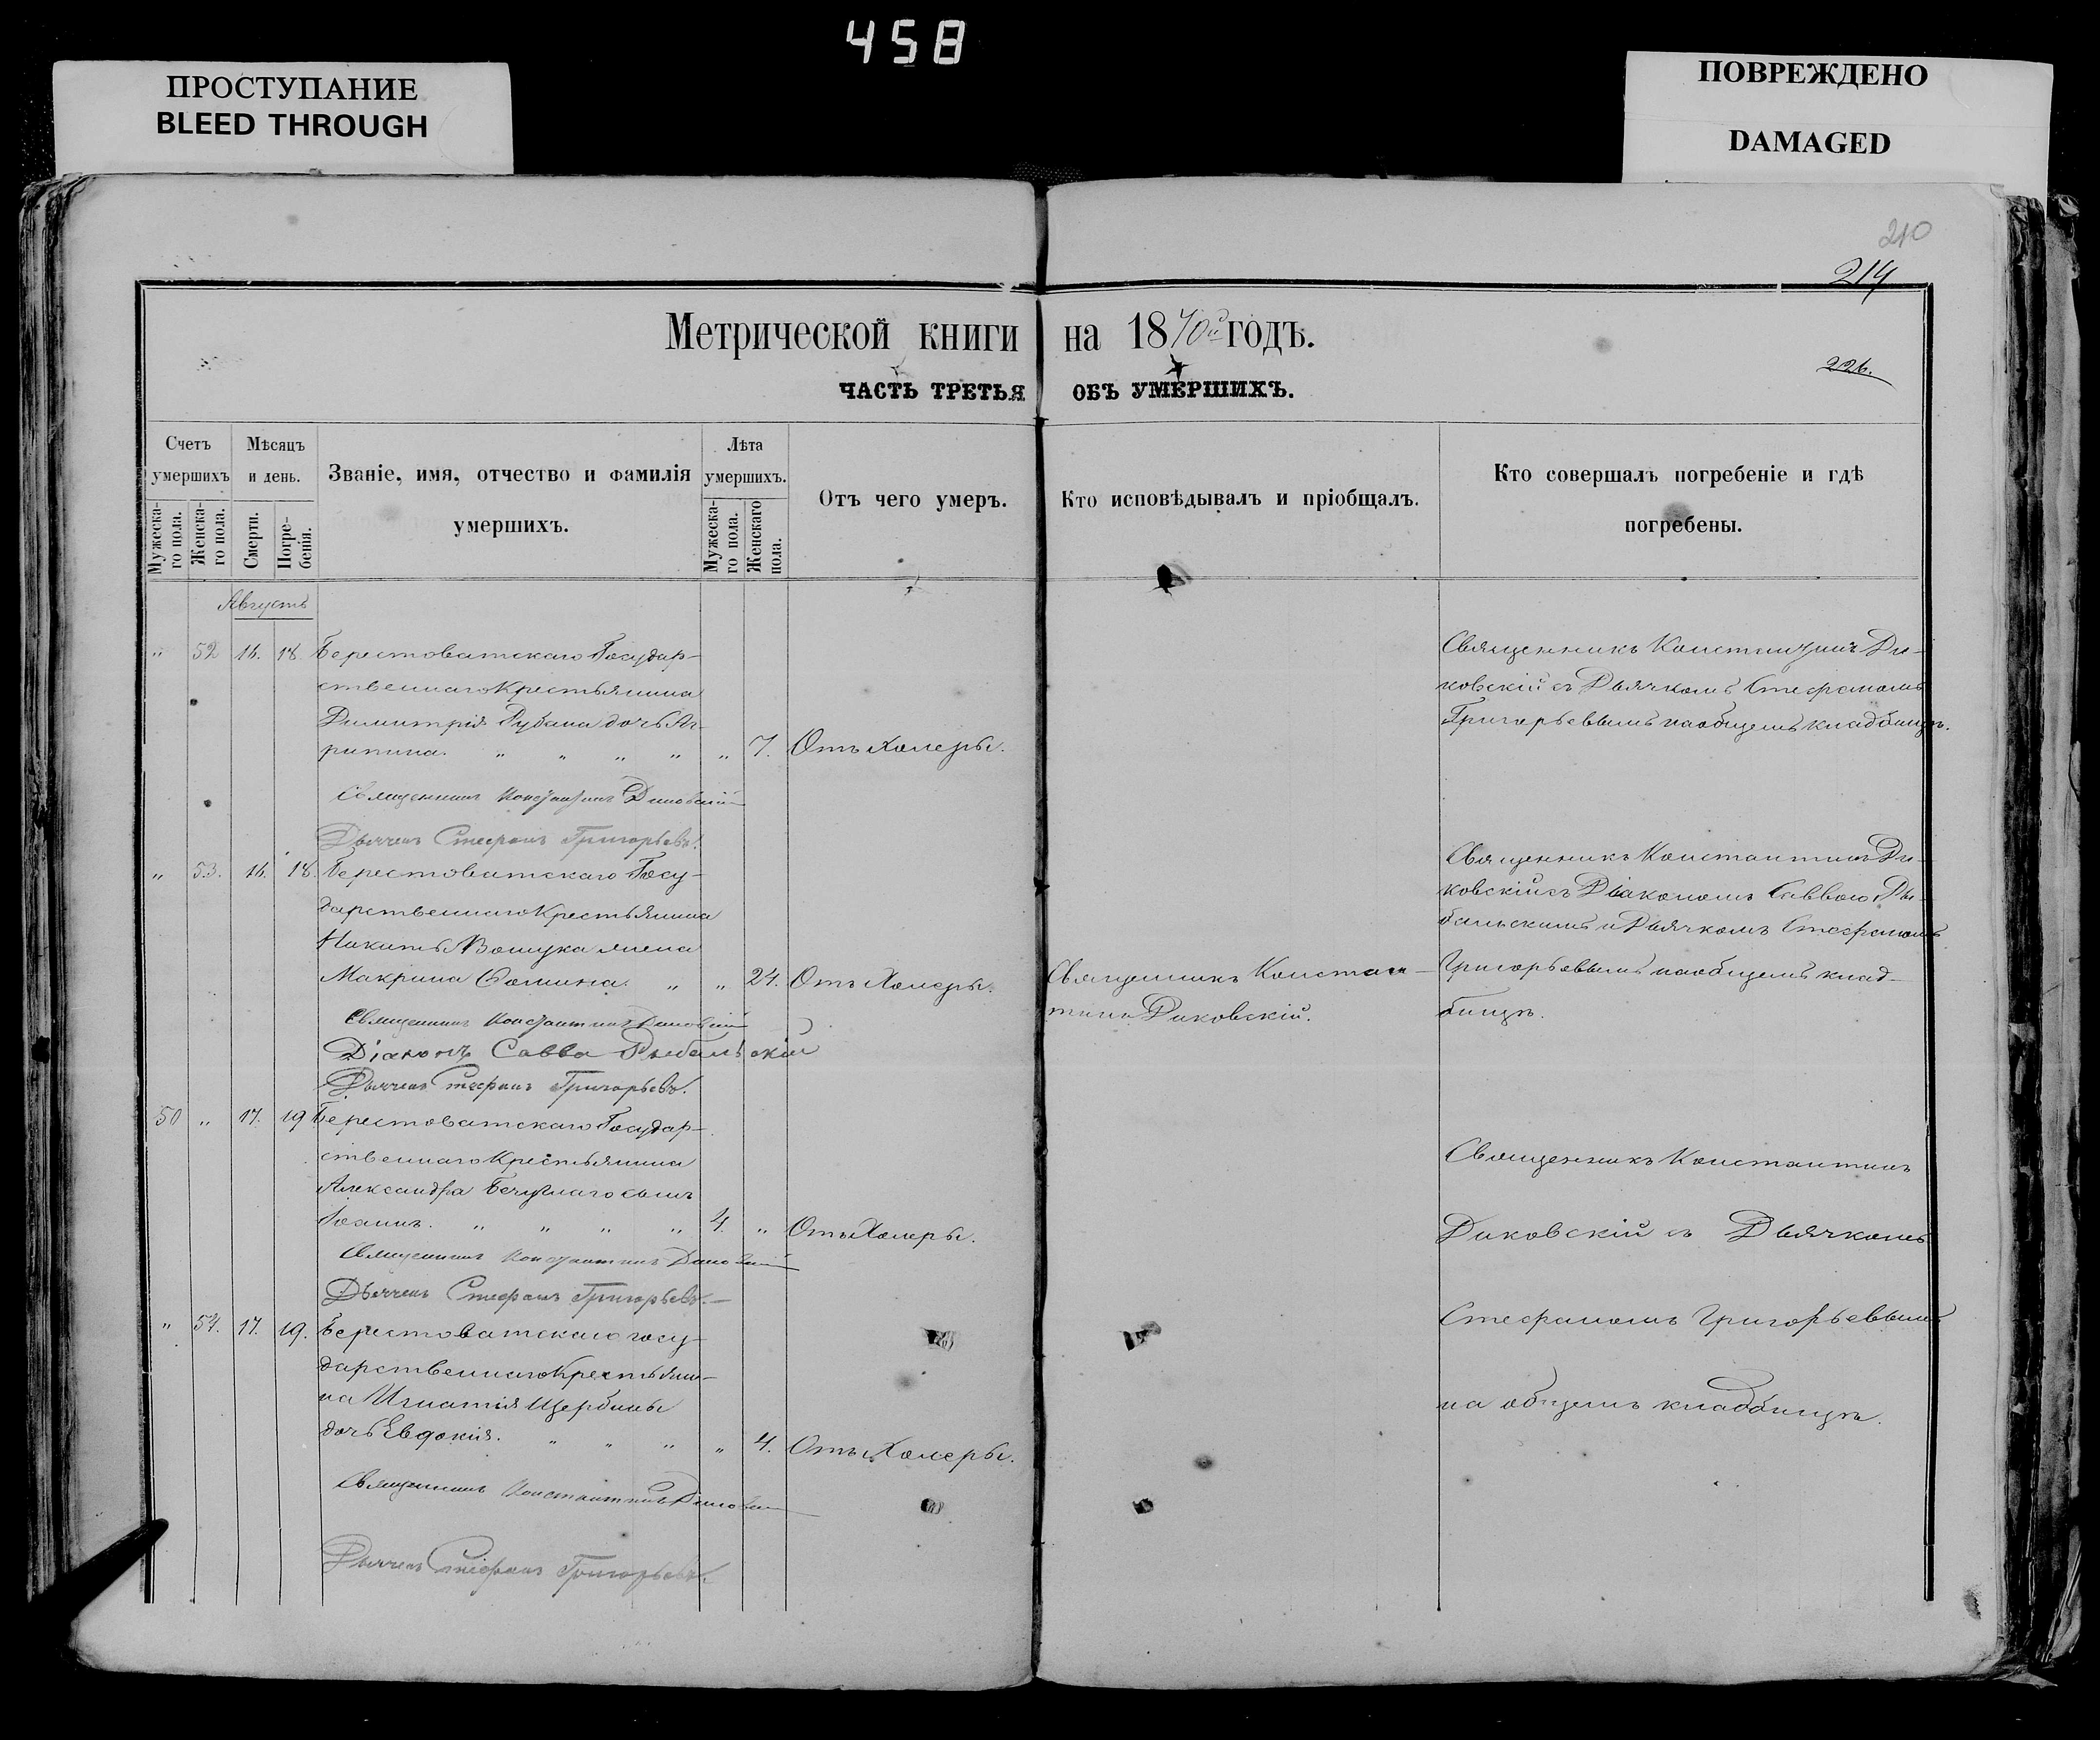 458
ПРОСТУПАНИЕ
BLEED THROUGH
ПОВРЕЖДЕНО
DAMAGED
210
214
226.
Метрической книги на 1870й годъ.
ЧАСТЬ ТРЕТЬЯ ОБЪ УМЕРШИХЪ.
Счетъ умершихъ
Мужеска-го пола.
Женска-го пола.
Мѣсяцъ и день.
Смерти.
Погре-бенія.
Званіе, имя, отчество и фамилія
умершихъ.
Лѣта умершихъ.
Мужеска-го пола.
Женскаго пола.
Отъ чего умеръ.
Кто исповѣдывалъ и пріобщалъ.
Кто совершалъ погребеніе и гдѣ
погребены.
Августъ
" 52 16. 18. Берестоватскаго Государ-
ственнаго Крестьянина
Димитрія Рубана дочь Аг-
рипина. " " " " " 7. Отъ Холеры.
Священникъ Константинъ Ди-
ковскій съ Дьячкомъ Стефаномъ
Григорьевымъ на общемъ кладбищѣ.
Священникъ Константинъ Диковскій
Дьячекъ Стефанъ Григорьевъ.
" 53. 16. 18. Берестоватскаго Госу-
дарственнаго Крестьянина
Никиты жена
Макрина Фомина. " " 24. Отъ Холеры.
Священникъ Констан-
тинъ Диковскій.
Священникъ Константинъ Ди-
ковскій съ Діакономъ Саввою Ры-
бальскимъ и Дьячкомъ Стефаномъ
Григорьевымъ на общемъ клад-
бищѣ.
Священникъ Константинъ Диковскій
Діаконъ Савва Рыбальскій
Дьячекъ Стефанъ Григорьевъ.
50 " 17. 19 Берестоватскаго Государ-
ственнаго Крестьянина
Александра сынъ
Іоаннъ. " " " " 4. " Отъ Холеры.
Священникъ Константинъ Диковскій
Дьячекъ Стефанъ Григорьевъ.
" 54. 17. 19. Берестоватскаго госу-
дарственнаго Крестьяни-
на Игнатія Щербины
дочь Евдокія. " " " " 4. Отъ Холеры.
Священникъ Константинъ
Диковскій съ Дьячкомъ
Стефаномъ Григорьевымъ
на общемъ кладбищѣ.
Священникъ Константинъ Диковскій
Дьячекъ Стефанъ Григорьевъ.